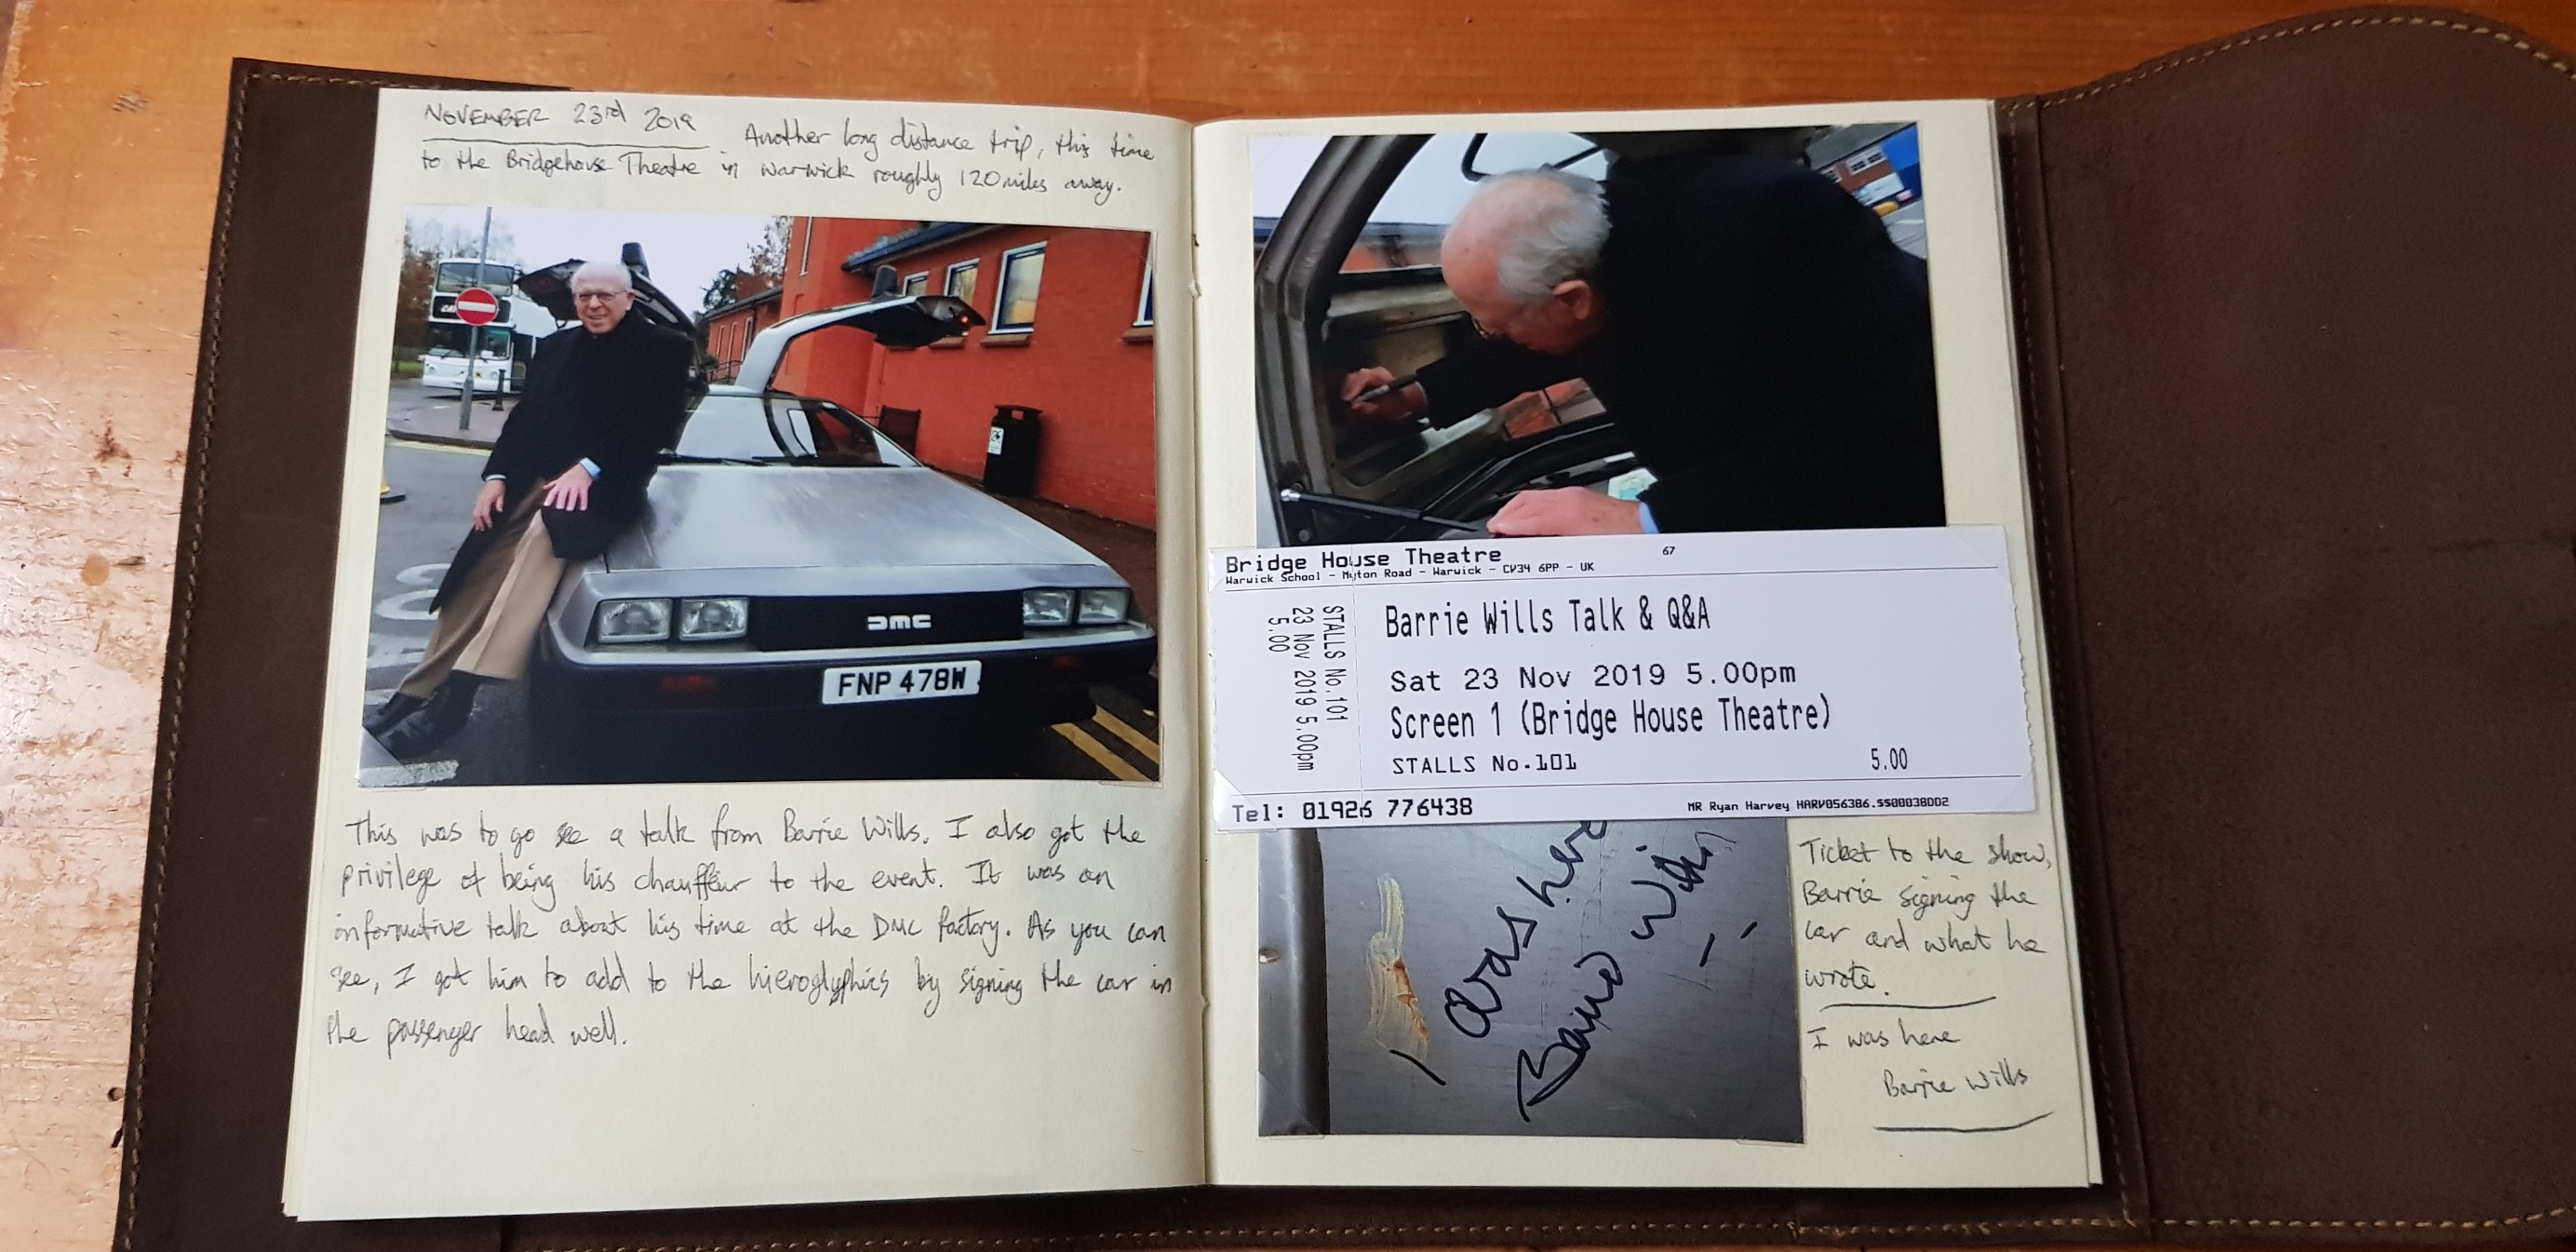 NOVEMBER 23rd 2019
Another long distance trip, this time
to the Bridgehouse Theatre in Warwick roughly 120 miles away.
DMC
FNP 478W
This was to go see a talk from Barrie Wills. I also got the
privilege of being his chauffeur to the event. It was an
informative talk about his time at the DMC factory. As you can
see, I got him to add to the hieroglyphics by signing the car in
the passenger head well.
Bridge House Theatre
67
Warwick School - Myton Road - Warwick - CV34 6PP - UK
STALLS No.101
23 Nov 2019 5.00pm
5.00
Barrie Wills Talk & Q&A
Sat 23 Nov 2019 5.00pm
Screen 1 (Bridge House Theatre)
STALLS No.101
5.00
Tel: 01926 776438
MR Ryan Harvey HARV056386.SS00038002
I was here
Barrie Wills
Ticket to the show,
Barrie signing the
car and what he
wrote.
I was here
Barrie Wills